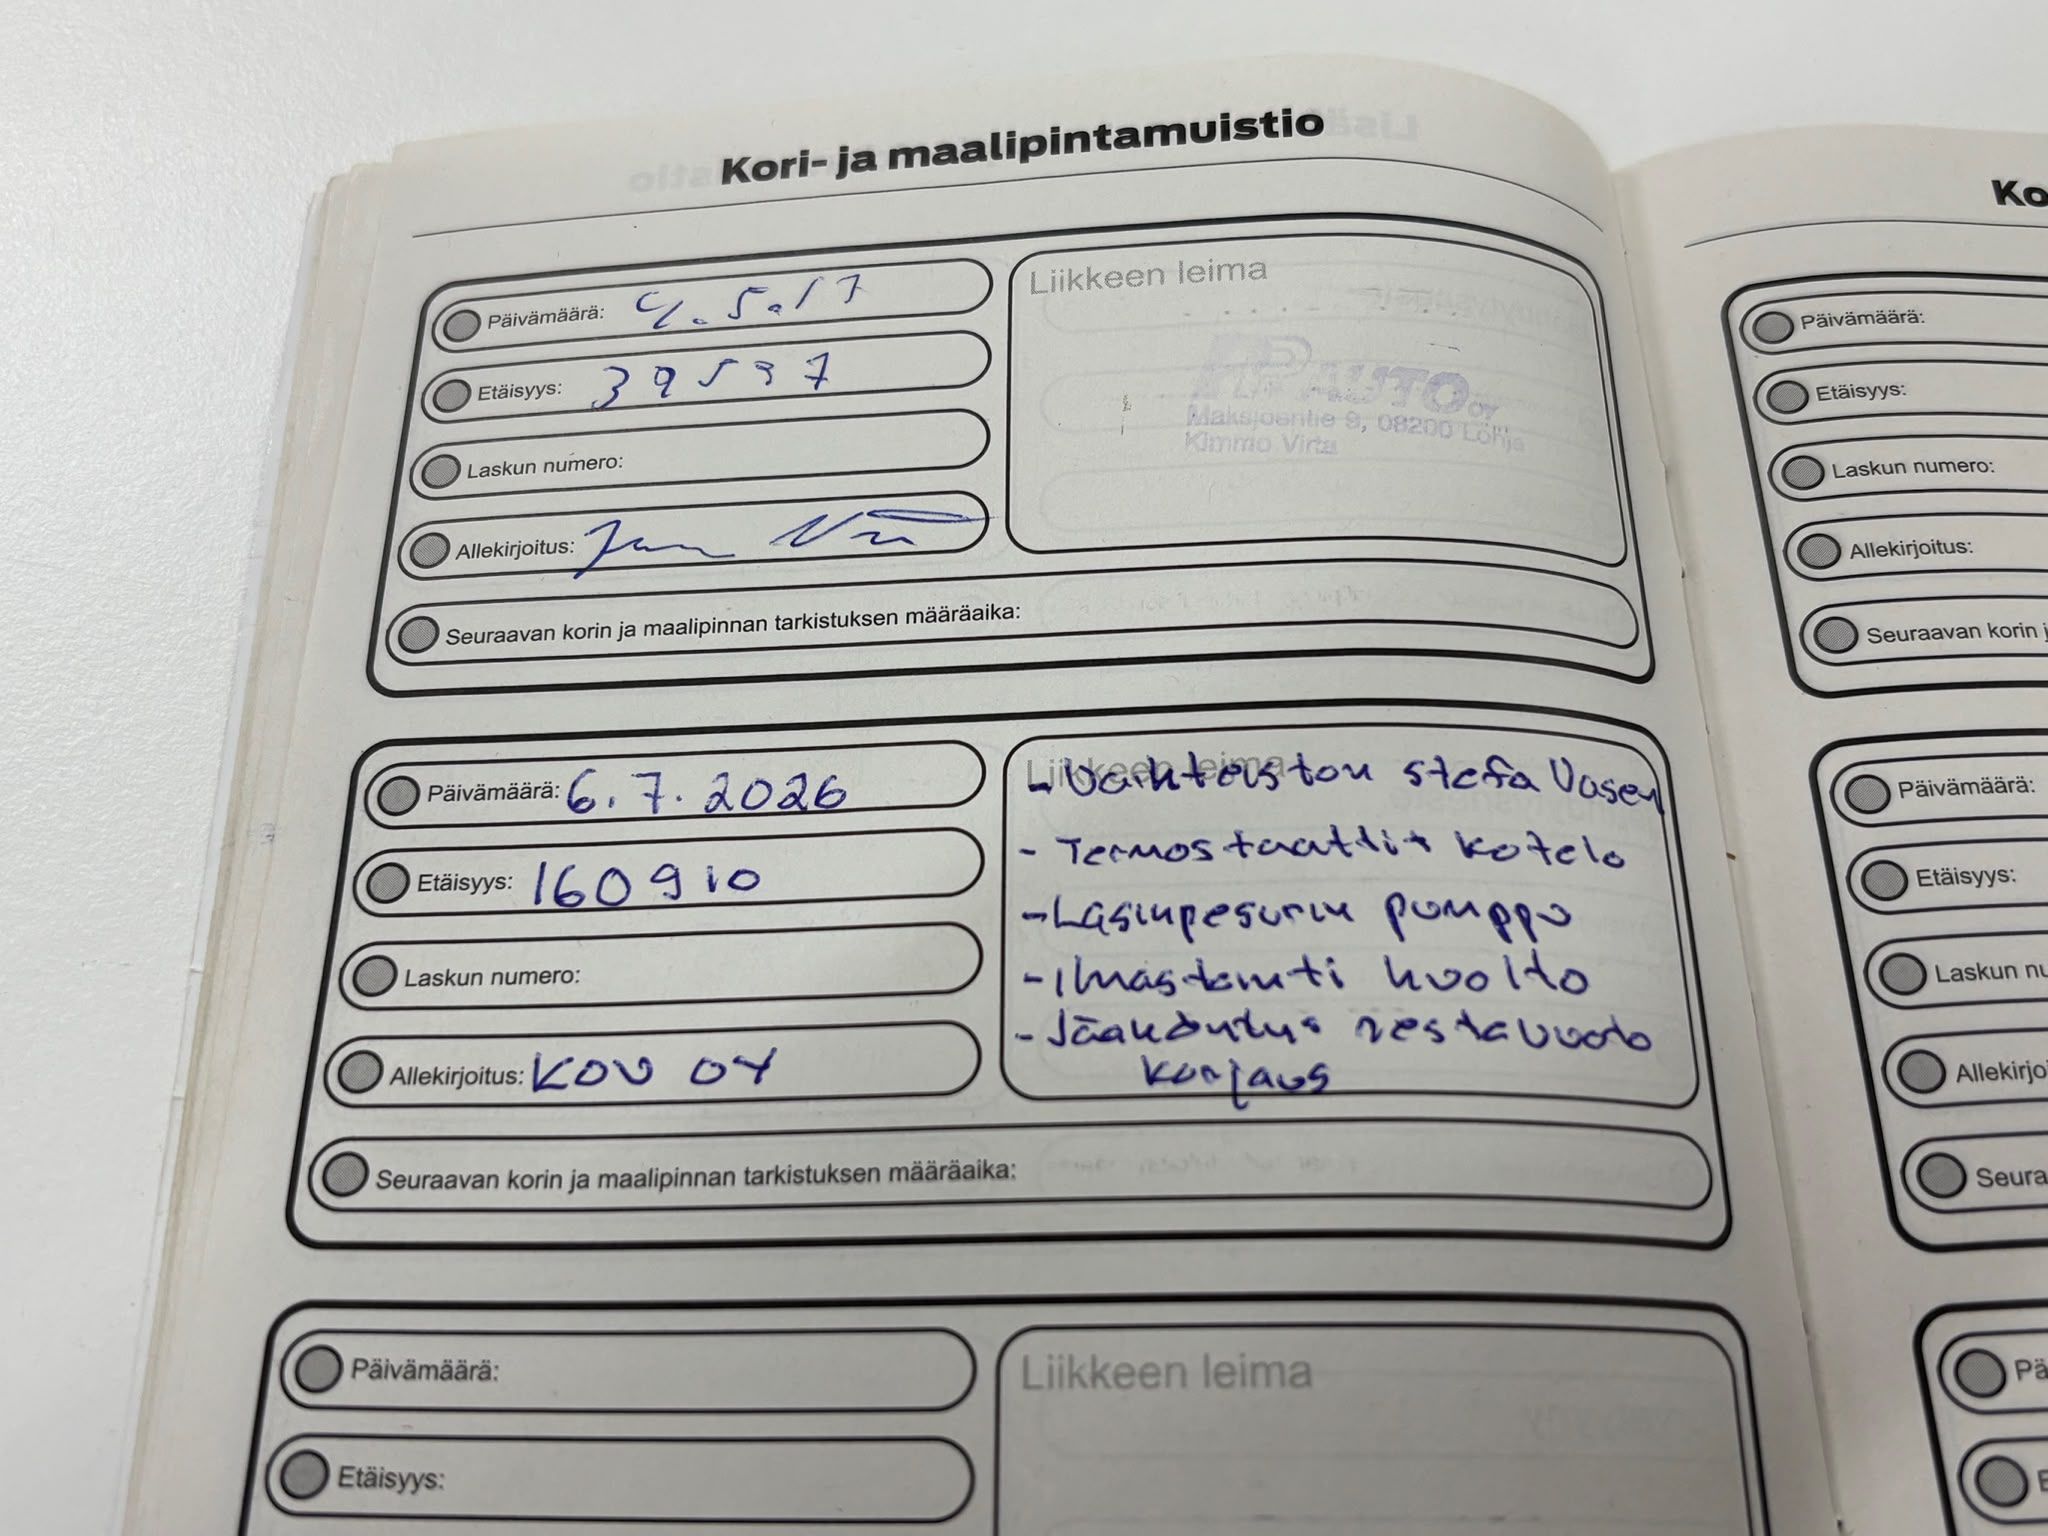 Kori- ja maalipintamuistio
Päivämäärä: 4.5.17
Etäisyys: 39537
Laskun numero:
Allekirjoitus:
Seuraavan korin ja maalipinnan tarkistuksen määräaika:
Liikkeen leima
HP AUTO OY
Maksjoentie 9, 08200 Lohja
Kimmo Virta
Päivämäärä: 6.7.2026
Etäisyys: 160910
Laskun numero:
Allekirjoitus: KOV OY
Seuraavan korin ja maalipinnan tarkistuksen määräaika:
Liikkeen leima
- Vaihteiston stefa Vasen
- Termostaattit kotelo
- Lasinpesurin pomppo
- Ilmastointi huolto
- Jäähdytys nestevuoto
korjaus
Päivämäärä:
Etäisyys:
Liikkeen leima
Ko
Päivämäärä:
Etäisyys:
Laskun numero:
Allekirjoitus:
Seuraavan korin j
Päivämäärä:
Etäisyys:
Laskun nu
Allekirjo
Seura
Pä
E